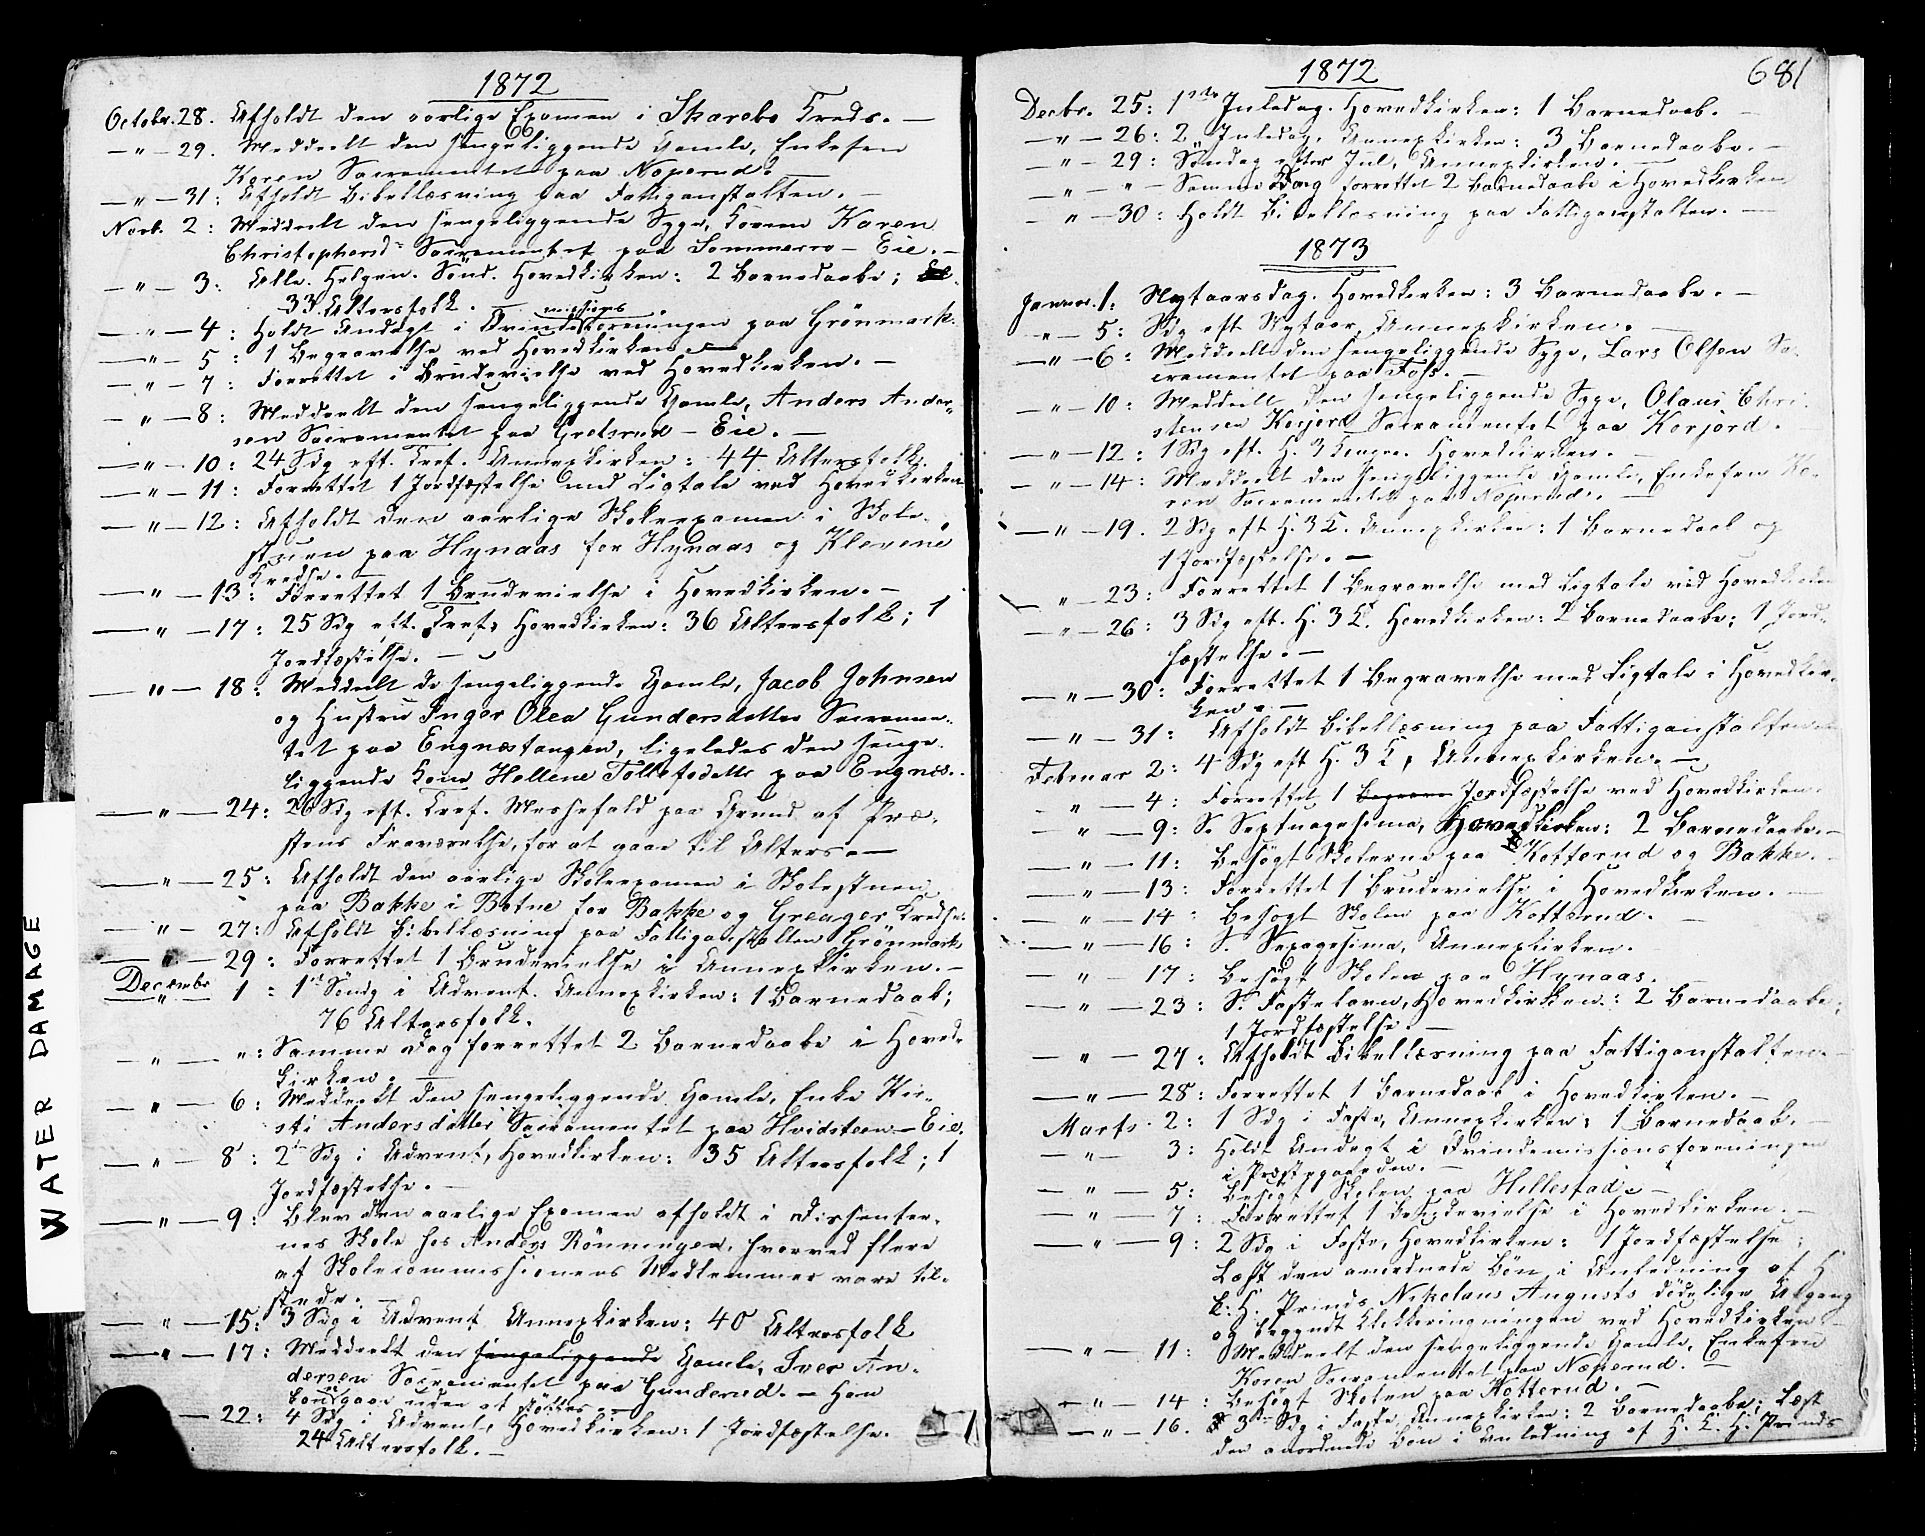 1872
Octobr. 28. Afholdt den aarlige Examen i Skarebo Kreds. —
— " — 29. Meddeelt den sengeliggende Gamle, Enkefru
Karen Sacramentet paa Næperud.
— " — 31: Afholdt Bibellæsning paa Fattiganstalten. —
Novb. 2: Meddeelt den sengeliggende Syge, Karen
Christophersd: Sacramentet paa Sommerro - Eie. —
— " — 3: Alle Helgen. Sönd. Hovedkirken: 2 Barnedaabe;
33 Altersfolk.
— " — 4: Holdt Andagt i Qvindemissionsforeningen paa Grönmark.
— " — 5: 1 Begravelse ved Hovedkirken.
— " — 7: Forrettet 1 Brudevielse ved Hovedkirken. —
— " — 8: Meddeelt den sengeliggende Gamle, Anders Ander-
sen Sacramentet paa Gretsrud - Eie. —
— " — 10: 24 Sdg eft. Tref. Annexkirken: 44 Altersfolk.
— " — 11: Forrettet 1 Jordfæstelse med Ligtale ved Hovedkirken
— " — 12: Afholdt den aarlige Skoleexamen i Skole-
stuen paa Hynaas for Hynaas og Klevene
Kredse. —
— " — 13: Forrettet 1 Brudevielse i Hovedkirken. —
— " — 17: 25 Sdg eft. Tref. Hovedkirken: 36 Altersfolk; 1
Jordfæstelse. —
— " — 18: Meddeelt de sengeliggende Gamle, Jacob Johnsen
og Hustru Inger Olea Gundersdatter Sacramen-
tet paa Engnæstangen, ligeledes den senge-
liggende Kone Hellene Tollefsdatte paa Engnæs. -
— " — 24: 26 Sdg eft. Tref. Messefald paa Grund af Præ-
stens Fraværelse, for at gaae til Alters. —
— " — 25: Afholdt den aarlige Skoleexamen i Skolestuen
paa Bakke i Botne for Bakke og Greager Kredse.
— " — 27: Afholdt Bibellæsning paa Fattiganstalten Grönmark
— " — 29: Forrettet 1 Brudevielse i Annexkirken. —
Decembr 1: 1ste Söndg i Advent. Annexkirken: 1 Barnedaab;
76 Altersfolk.
— " — ": Samme Dag forrettet 2 Barnedaabe i Hoved-
kirken. —
— " — 6: Meddeelt den sengeliggende Gamle, Enke Kir-
sti Andersdatter Sacramentet paa Hvidsteen - Eie.
— " — 8: 2 Sdg i Advent, Hovedkirken: 35 Altersfolk; 1
Jordfæstelse. —
— " — 9: Blev den aarlige Examen afholdt i Dissenter-
nes Skole hos Anders Rönningen, hvorved flere
af Skolecommissionens Medlemmer vare til-
stede. —
— " — 15: 3 Sdg i Advent Annexkirken: 40 Altersfolk
— " — 17: Meddeelt den sengeliggende Gamle, Iver An-
dersen Sacramentet paa Gunderud. — Han
gaae uden at stöttes. —
— 22: 4 Sdg i Advent, Hovedkirken: 1 Jordfæstelse.
24 Altersfolk. —
1872
681
Decbr. 25: 1ste Juledag. Hovedkirken: 1 Barnedaab. —
— " — 26: 2 Juledag, Annexkirken: 3 Barnedaabe. —
— " — 29: Söndag efter Jul, Annexkirken. —
— " — " — Samme Dag forrettet 2 Barnedaabe i Hovedkirken
— " — 30: Holdt Bibellæsning paa Fattiganstalten. —
1873
Januar. 1: Nytaarsdag. Hovedkirken: 3 Barnedaabe. —
— " — 5: Sdg eft Nytaar, Annexkirken. —
— " — 6: Meddeelt den sengeliggende Syge, Lars Olsen Sa-
cramentet paa Foss. —
— " — 10: Meddeelt den sengeliggende Syge, Olaus Chri-
stensen Korjord Sacramentet paa Korjord. —
— " — 12: 1 Sdg eft. H. 3 Konger. Hovedkirken. —
— " — 14: Meddeelt den sengeliggende Gamle, Enkefru Ka-
ren Sacramentet paa Næperud. —
— " — 19. 2 Sdg eft H. 3 K. Annexkirken: 1 Barnedaab og
1 Jordfæstelse. —
— " — 23: Forrettet 1 Begravelse med Ligtale ved Hovedkirken
— " — 26: 3 Sdg eft. H. 3 K. Hovedkirken: 2 Barnedaabe; 1 Jord-
fæstelse. —
— " — 30: Forrettet 1 Begravelse med Ligtale i Hovedkir-
ken. —
— " — 31: Afholdt Bibellæsning paa Fattiganstalten.
Februar 2: 4 Sdg eft H. 3 K, Annexkirken. —
" — 4: Forrettet 1 Begrave Jordfæstelse ved Hovedkirken.
" — 9: S. Septuagesima, Hovedkirken: 2 Barnedaabe. —
— " — 11: Besögt Skolerne paa Kotterud og Bakke. —
— " — 13: Forrettet 1 Brudevielse i Hovedkirken. —
— " — 14: Besögt Skolen paa Kotterud. —
— " — 16: S. Sexagesima, Annexkirken.
— " — 17: Besögt Skolen paa Hynaas.
— " — 23: S. Fastelavn, Hovedkirken: 2 Barnedaabe;
1 Jordfæstelse. —
— " — 27: Afholdt Bibellæsning paa Fattiganstalten. —
— " — 28: Forrettet 1 Barnedaab i Hovedkirken. —
Marts. 2: 1 Sdg i Faste, Annexkirken: 1 Barnedaab. —
— " — 3: Holdt Andagt i Qvindemissionsforeningen
i Præstegaarden. —
— " — 5: Besögt Skolen paa Hillestad. —
— " — 7: Forrettet 1 Brudevielse i Hovedkirken. —
— " — 9: 2 Sdg i Faste, Hovedkirken: 1 Jordfæstelse;
Læst den anordnede Bön i Anledning af H.
K: H. Prinds Nikolaus Augusts dödelige Afgang
og begyndt Klokkeringningen ved Hovedkirken. —
— " — 11: Meddeelt den sengeliggende Gamle, Enkefru
Karen Sacramentet paa Næperud. —
— " — 14: Besögt Skolen paa Kotterud. —
— " — 16. 3die Sdg i Faste, Annexkirken: 2 Barnedaabe; Læst
den anordnede Bön i Anledning af H. K. H. Prinds
WATER DAMAGE